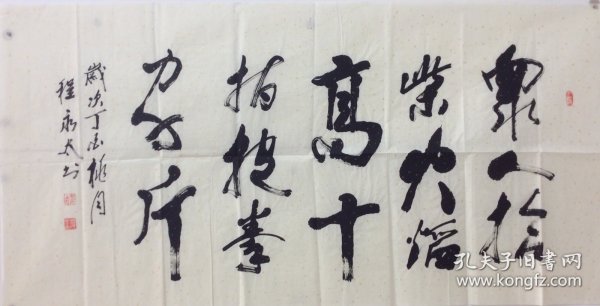 眾人拾
柴火焰
高十
指握拳
力斤
歲次丁酉桃月
程永太书
孔夫子旧书网
www.kongfz.com